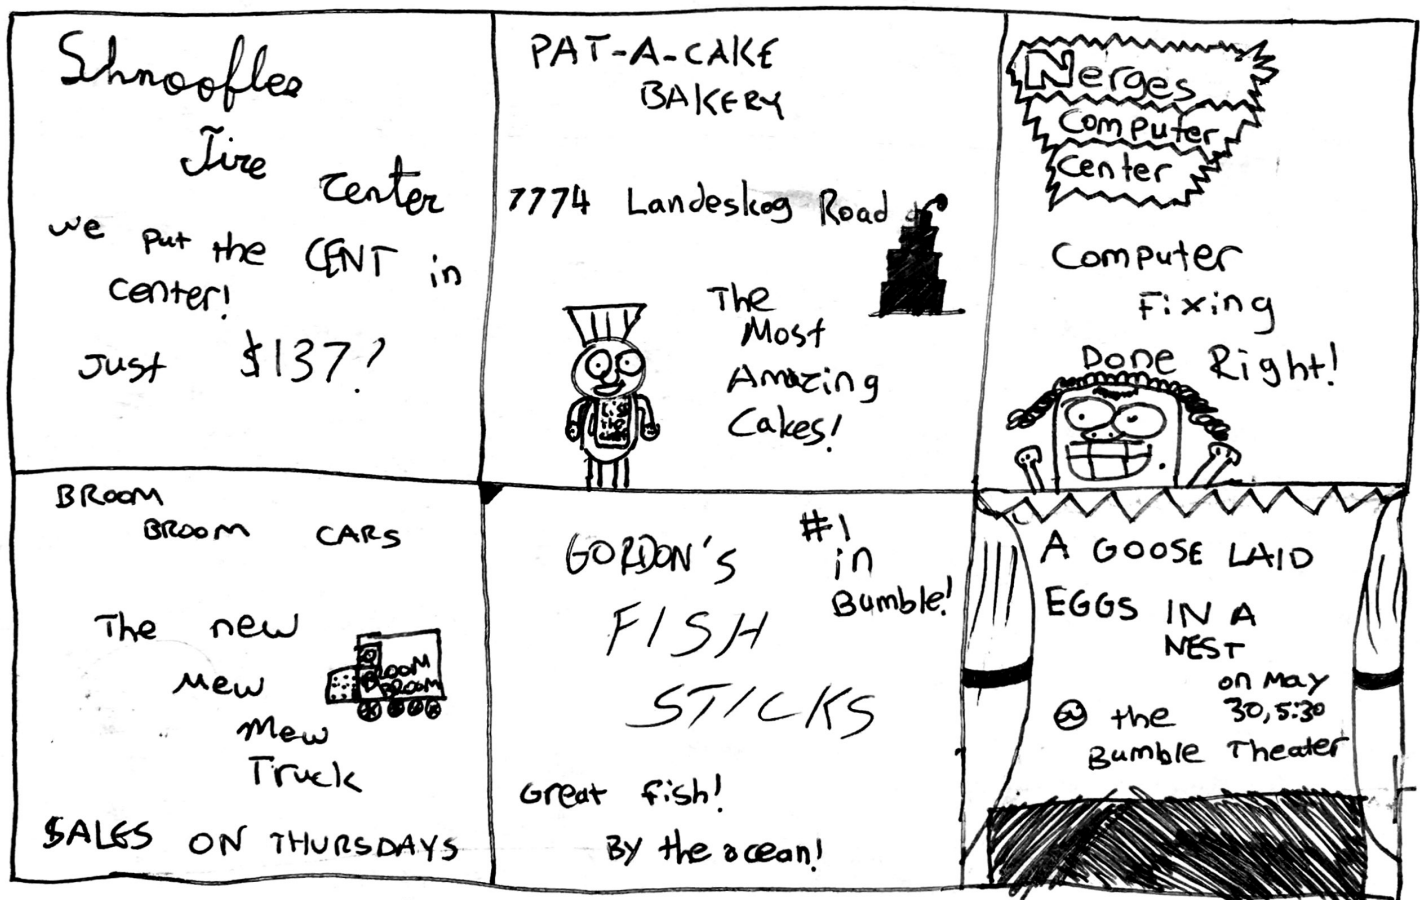 Shnoofles
Tire center
we put the CENT in
center!
Just $137!
PAT-A-CAKE
BAKERY
7774 Landeskog Road
The
Most
Amazing
Cakes!
Nerges
Computer
Center
Computer
Fixing
Done Right!
BROOM
BROOM CARS
The new
Mew
Mew
Truck
BROOM
BROOM
$ALES ON THURSDAYS
GORDON'S
FISH
STICKS
#1
in
Bumble!
Great fish!
By the ocean!
A GOOSE LAID
EGGS IN A
NEST
on May
30, 5:30
@ the
Bumble Theater